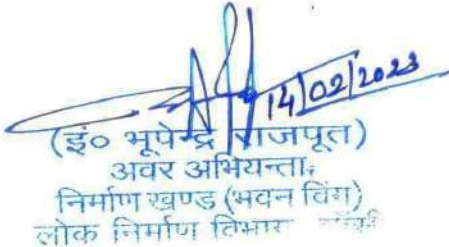 14/02/2023
(इं० भूपेन्द्र राजपूत)
अवर अभियन्ता,
निर्माण खण्ड (भवन विंग)
लोक निर्माण विभाग